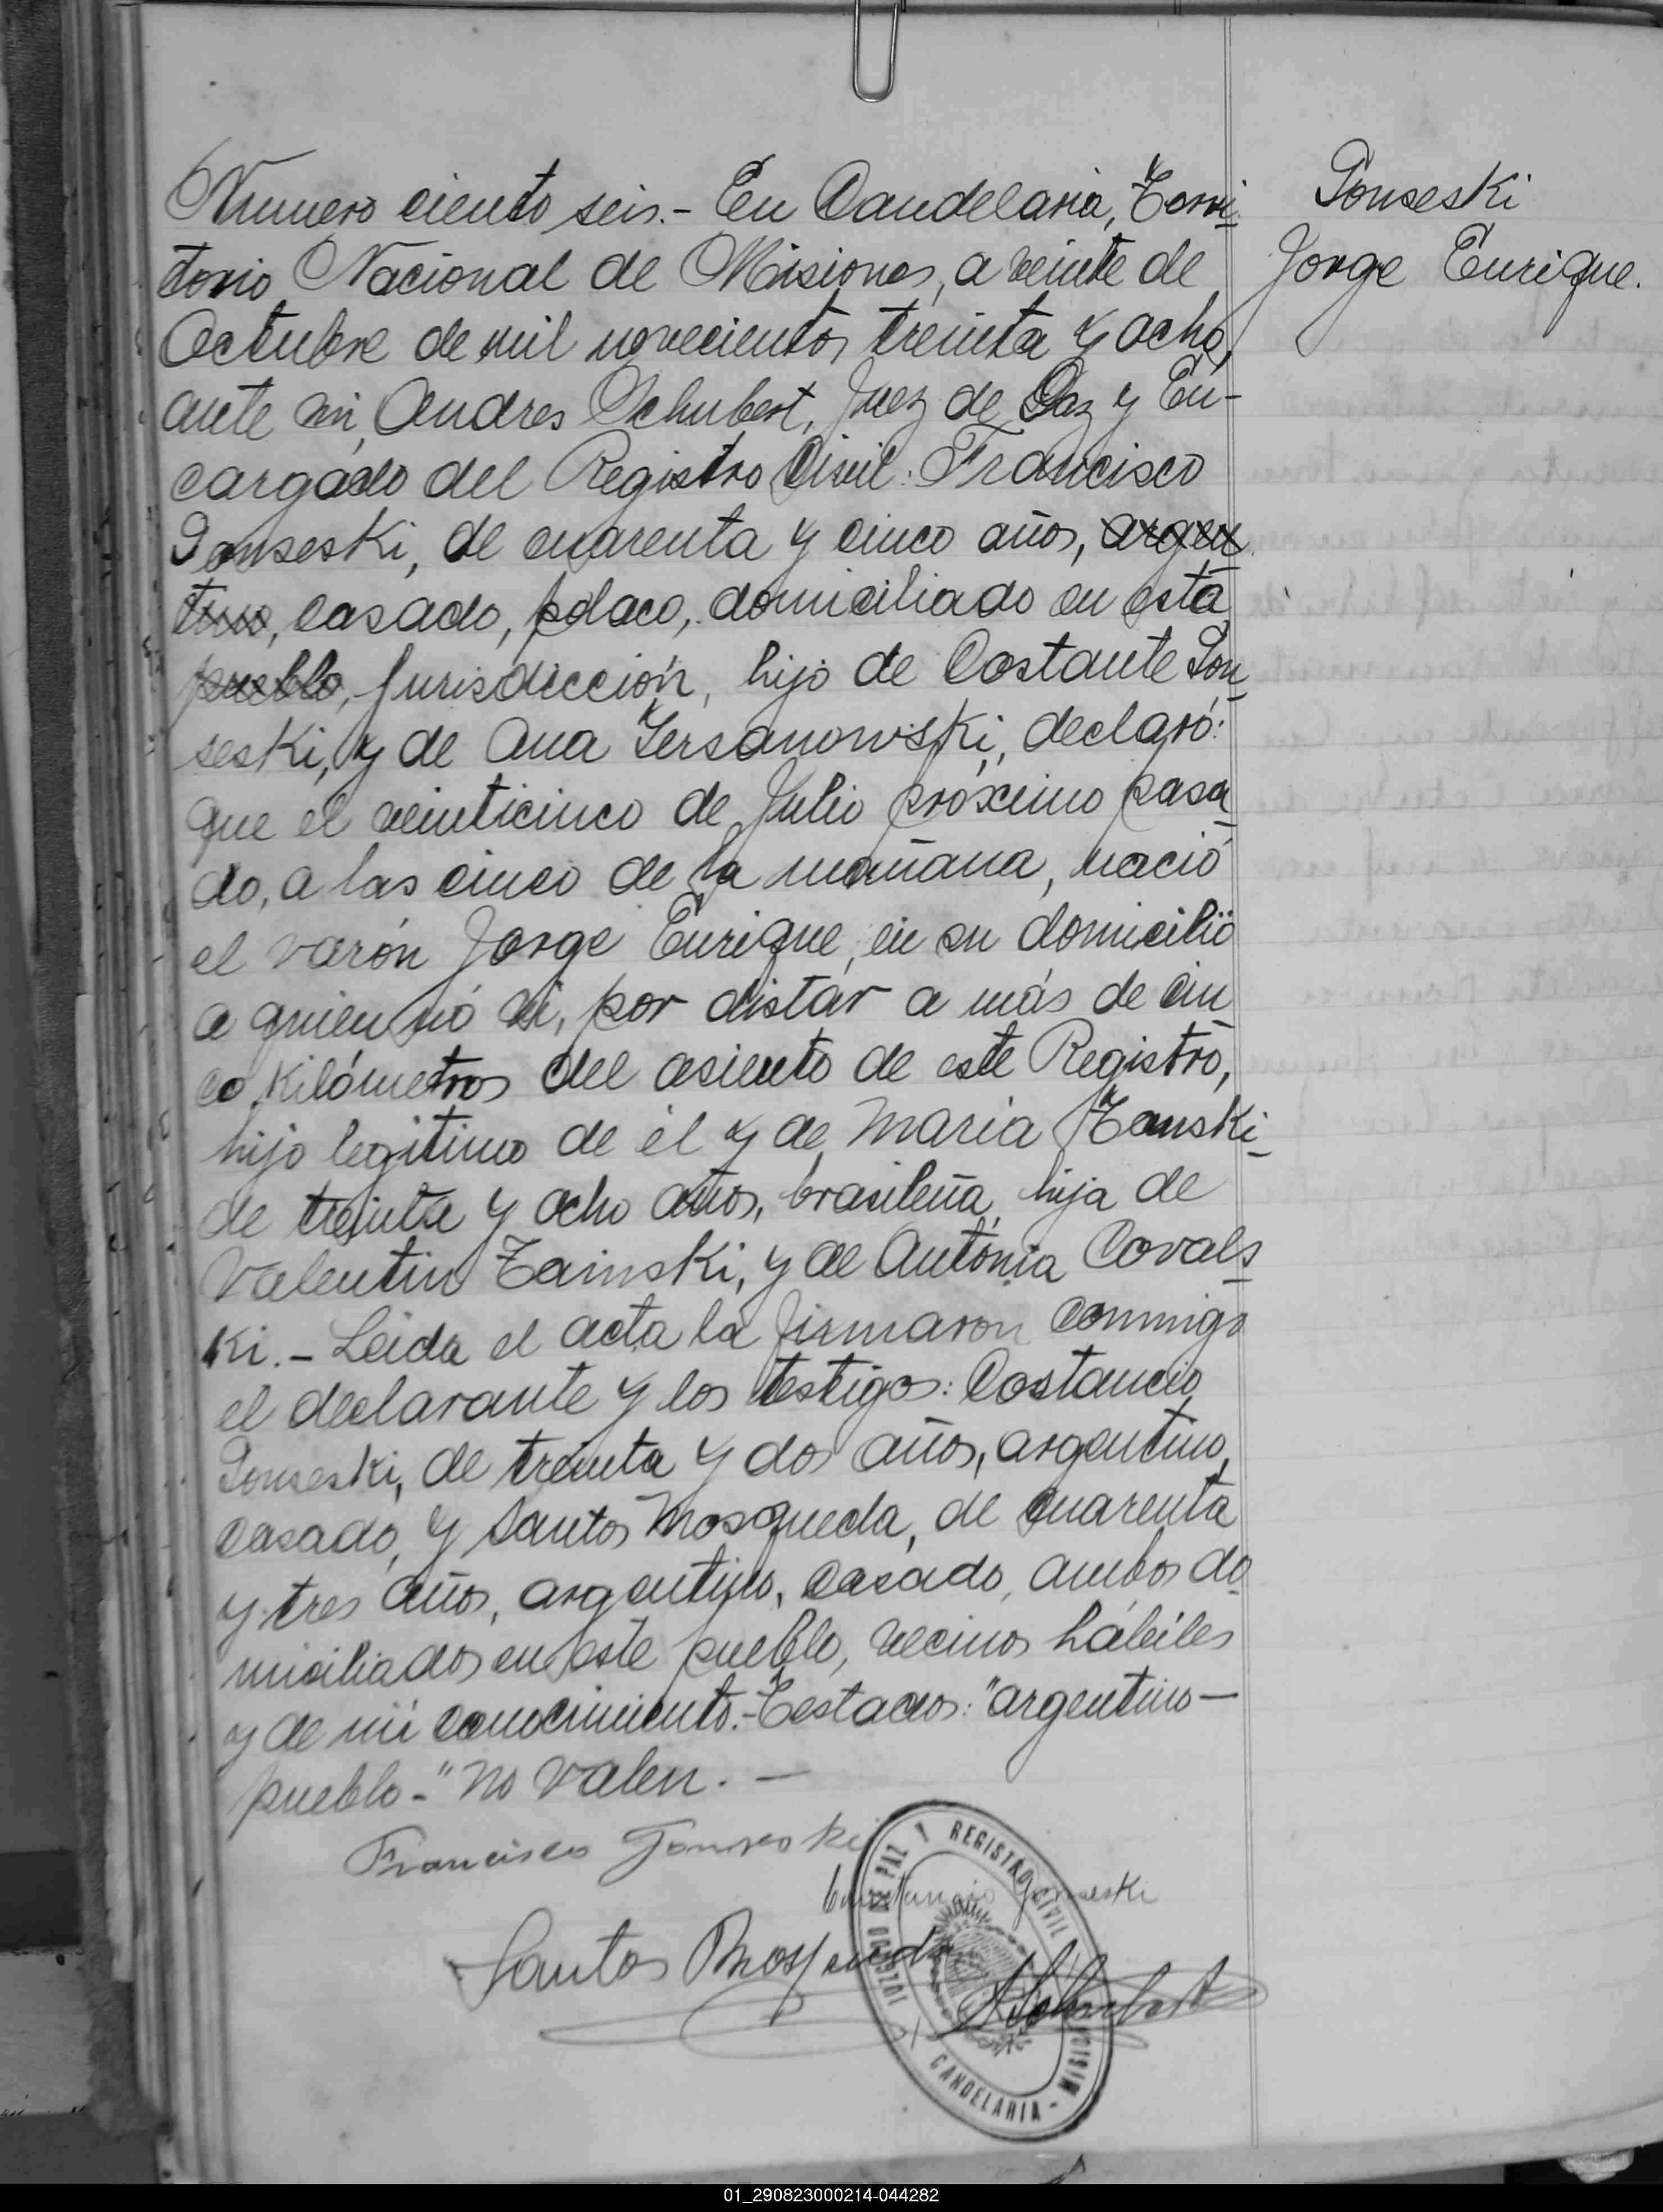 Numero ciento seis.- En Candelaria, Terri-
torio Nacional de Misiones, a veinte de
Octubre de mil novecientos treinta y ocho,
ante mi, Andres Schubert, Juez de Paz y En-
cargado del Registro Civil: Francisco
Ponseski, de cuarenta y cinco años, argen
tino, casado, polaco, domiciliado en esta
pueblo, Jurisdicción, hijo de Costante Pon
seski, y de Ana Yersanowski, declaró:
que el veinticinco de Julio próximo pasa
do, a las cinco de la mañana, nació
el varón Jorge Enrique, en su domicilio
a quien nó ví, por distar a más de cin
co kilómetros del asiento de este Registro,
hijo legítimo de él y de Maria Zanski
de treinta y ocho años, brasileña, hija de
Valentin Zainski, y de Antonia Covals
ki.- Leida el acta la firmaron conmigo
el declarante y los testigos: Costancio
Ponseski, de treinta y dos años, argentino,
casado, y Santos Mosqueda, de cuarenta
y tres años, argentino, casado, ambos do
miciliados en este pueblo, vecinos hábiles
y de mi conocimiento.-Testados: "argentino—
pueblo-" no valen. —
Ponseski
Jorge Enrique.
Francisco
Santos Mosqueda
JUZGADO DE PAZ Y REGISTRO CIVIL
CANDELARIA - MISIONES
01_290823000214-044282